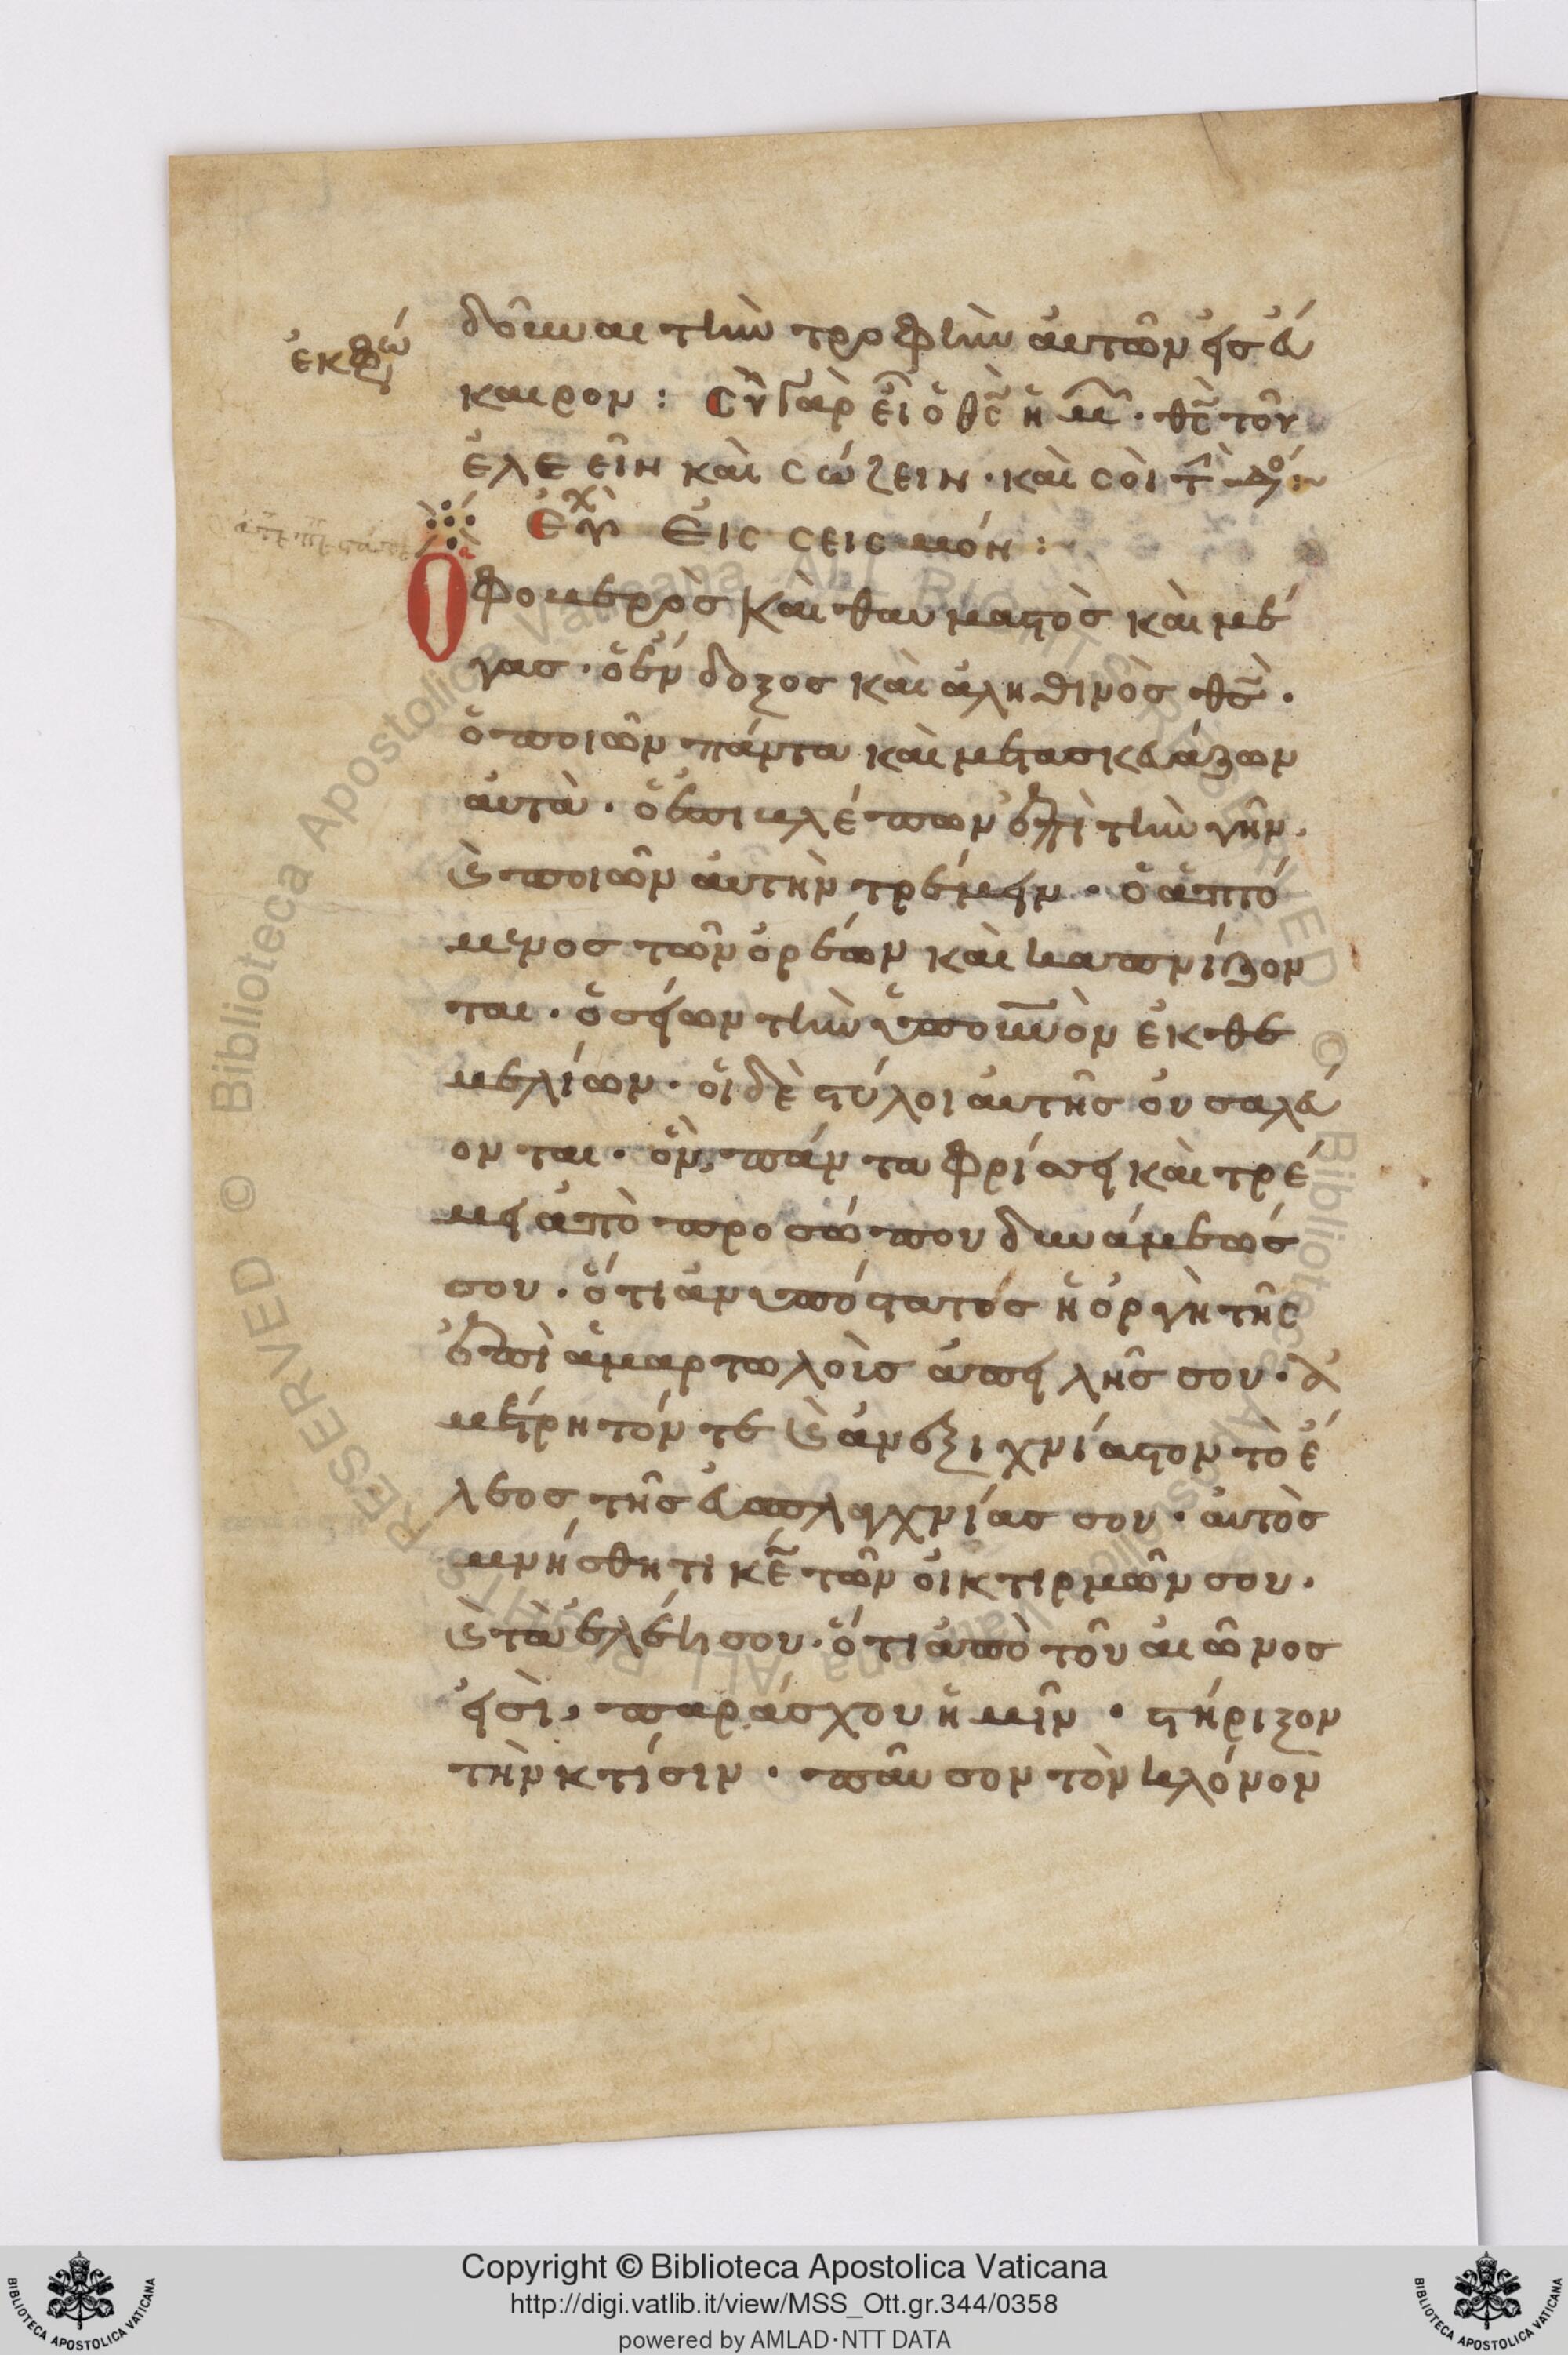 ἐκφώ
δοῦναι τὴν τροφὴν αὐτῶν εἰς εὔ
καιρον : Σὺ γὰρ εἶ ὁ θς ἡμ · θς τοῦ
ἐλεεῖν καὶ σώζειν · καὶ σοὶ τ δό :~
Εὐχ Εἰς σεισμόν :
Ὁ φοβερὸς καὶ θαυμαστὸς καὶ μέ
γας · ὁ ἔνδοξος καὶ ἀληθινὸς θς ·
ὁ ποιῶν πάντα καὶ μετασκευάζων
αὐτὰ · ὁ ἐπιβλέπων ἐπὶ τὴν γῆν ·
καὶ ποιῶν αὐτὴν τρέμειν · ὁ ἁπτό
μενος τῶν ὀρέων καὶ καπνίζον
ται · ὁ σείων τὴν ὑπ οὐνὸν ἐκ θε
μελίων · οἱ δὲ στύλοι αὐτῆς οὐ σαλεύ
ονται · ὃν πάντα φρίσσει καὶ τρέ
μει ἀπὸ προσώπου δυνάμεώς
σου · ὅτι ἀνυπόστατος ἡ ὀργὴ τῆς
ἐπὶ ἁμαρτωλοῖς ἀπειλῆς σου · ἀ
μέτρητόν τε καὶ ἀνεξιχνίαστον τὸ ἔ
λεος τῆς εὐσπλαγχνίας σου · αὐτὸς
μνήσθητι κε τῶν οἰκτιρμῶν σου ·
καὶ τὰ ἐλέη σου · ὅτι ἀπὸ τοῦ αἰῶνος
εἰσὶ, παράσχου ἡμῖν · στήριξον
τὴν κτίσιν · παῦσον τὸν κλόνον
Copyright © Biblioteca Apostolica Vaticana
http://digi.vatlib.it/view/MSS_Ott.gr.344/0358
powered by AMLAD·NTT DATA